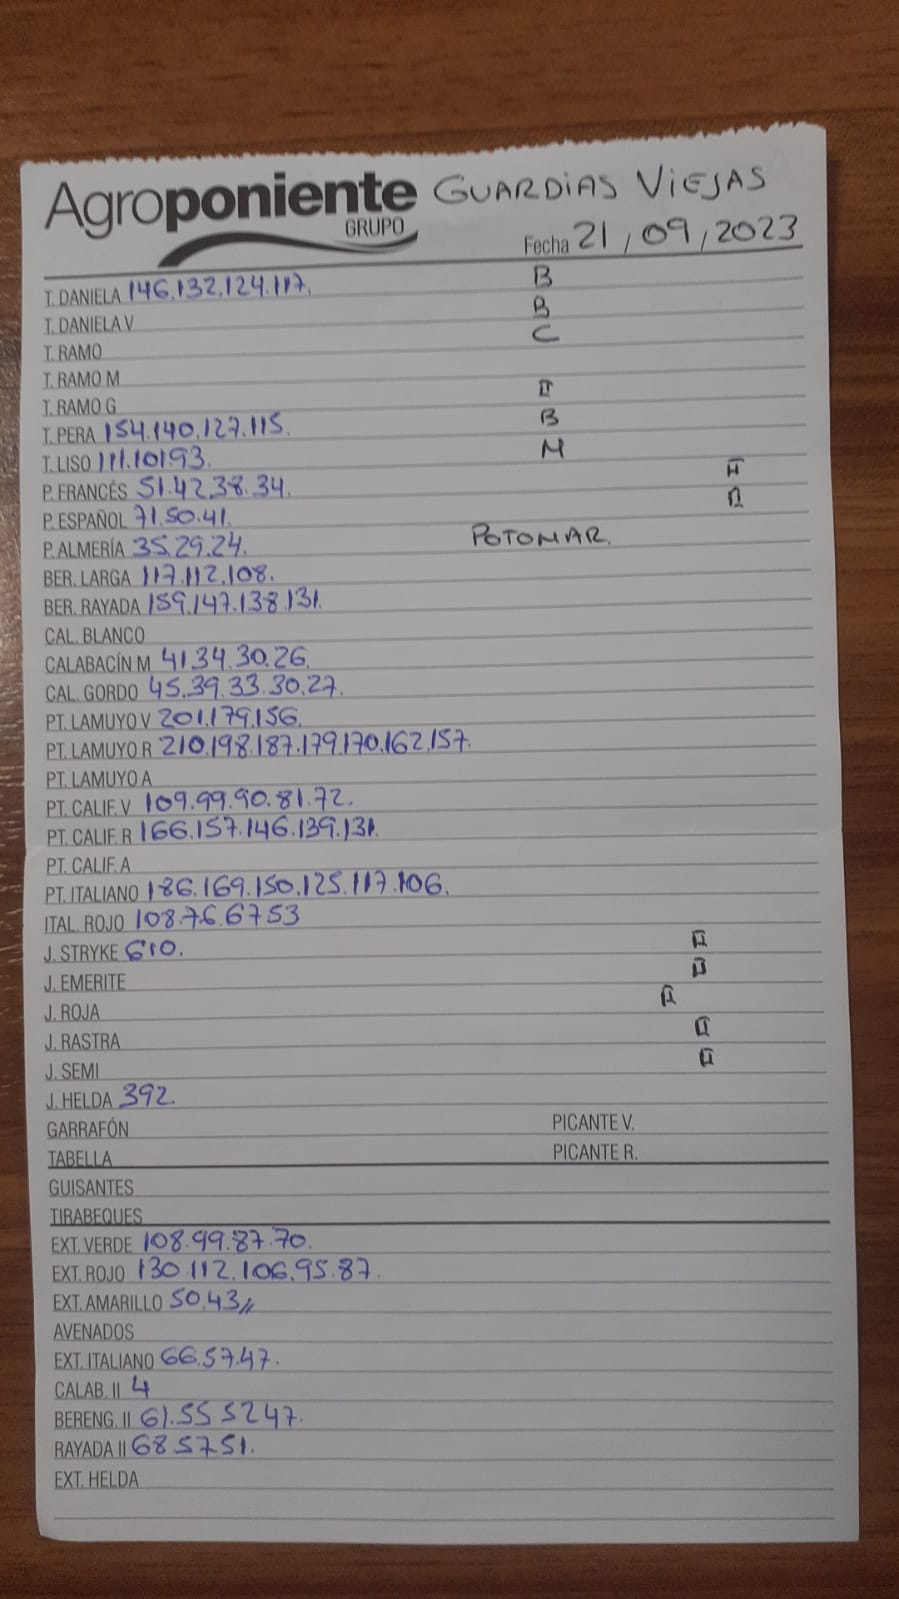 Agroponiente GUARDIAS VIEJAS
GRUPO
Fecha 21/09/2023
T. DANIELA 146.132.124.117. B
T. DANIELA V B
T. RAMO C
T. RAMO M
T. RAMO G II
T. PERA 154.140.127.115. B
T. LISO 111.101.93. M
P. FRANCÉS 51.42.38.34. II
P. ESPAÑOL 71.50.41. II
P. ALMERÍA 35.29.24. POTOMAR.
BER. LARGA 117.112.108.
BER. RAYADA 159.147.138.131.
CAL. BLANCO
CALABACÍN M 41.34.30.26.
CAL. GORDO 45.39.33.30.27.
PT. LAMUYO V 201.179.156.
PT. LAMUYO R 210.198.187.179.170.162.157.
PT. LAMUYO A
PT. CALIF. V 109.99.90.81.72.
PT. CALIF. R 166.157.146.139.131.
PT. CALIF. A
PT. ITALIANO 186.169.150.125.117.106.
ITAL. ROJO 108.76.67.53
J. STRYKE 610. II
J. EMERITE II
J. ROJA II
J. RASTRA II
J. SEMI II
J. HELDA 392.
GARRAFÓN PICANTE V.
TABELLA PICANTE R.
GUISANTES
TIRABEQUES
EXT. VERDE 108.99.87.70.
EXT. ROJO 130.112.106.95.87.
EXT. AMARILLO 50.43 //
AVENADOS
EXT. ITALIANO 66.57.47.
CALAB. II 4
BERENG. II 61.55 52 47.
RAYADA II 68 57 51.
EXT. HELDA